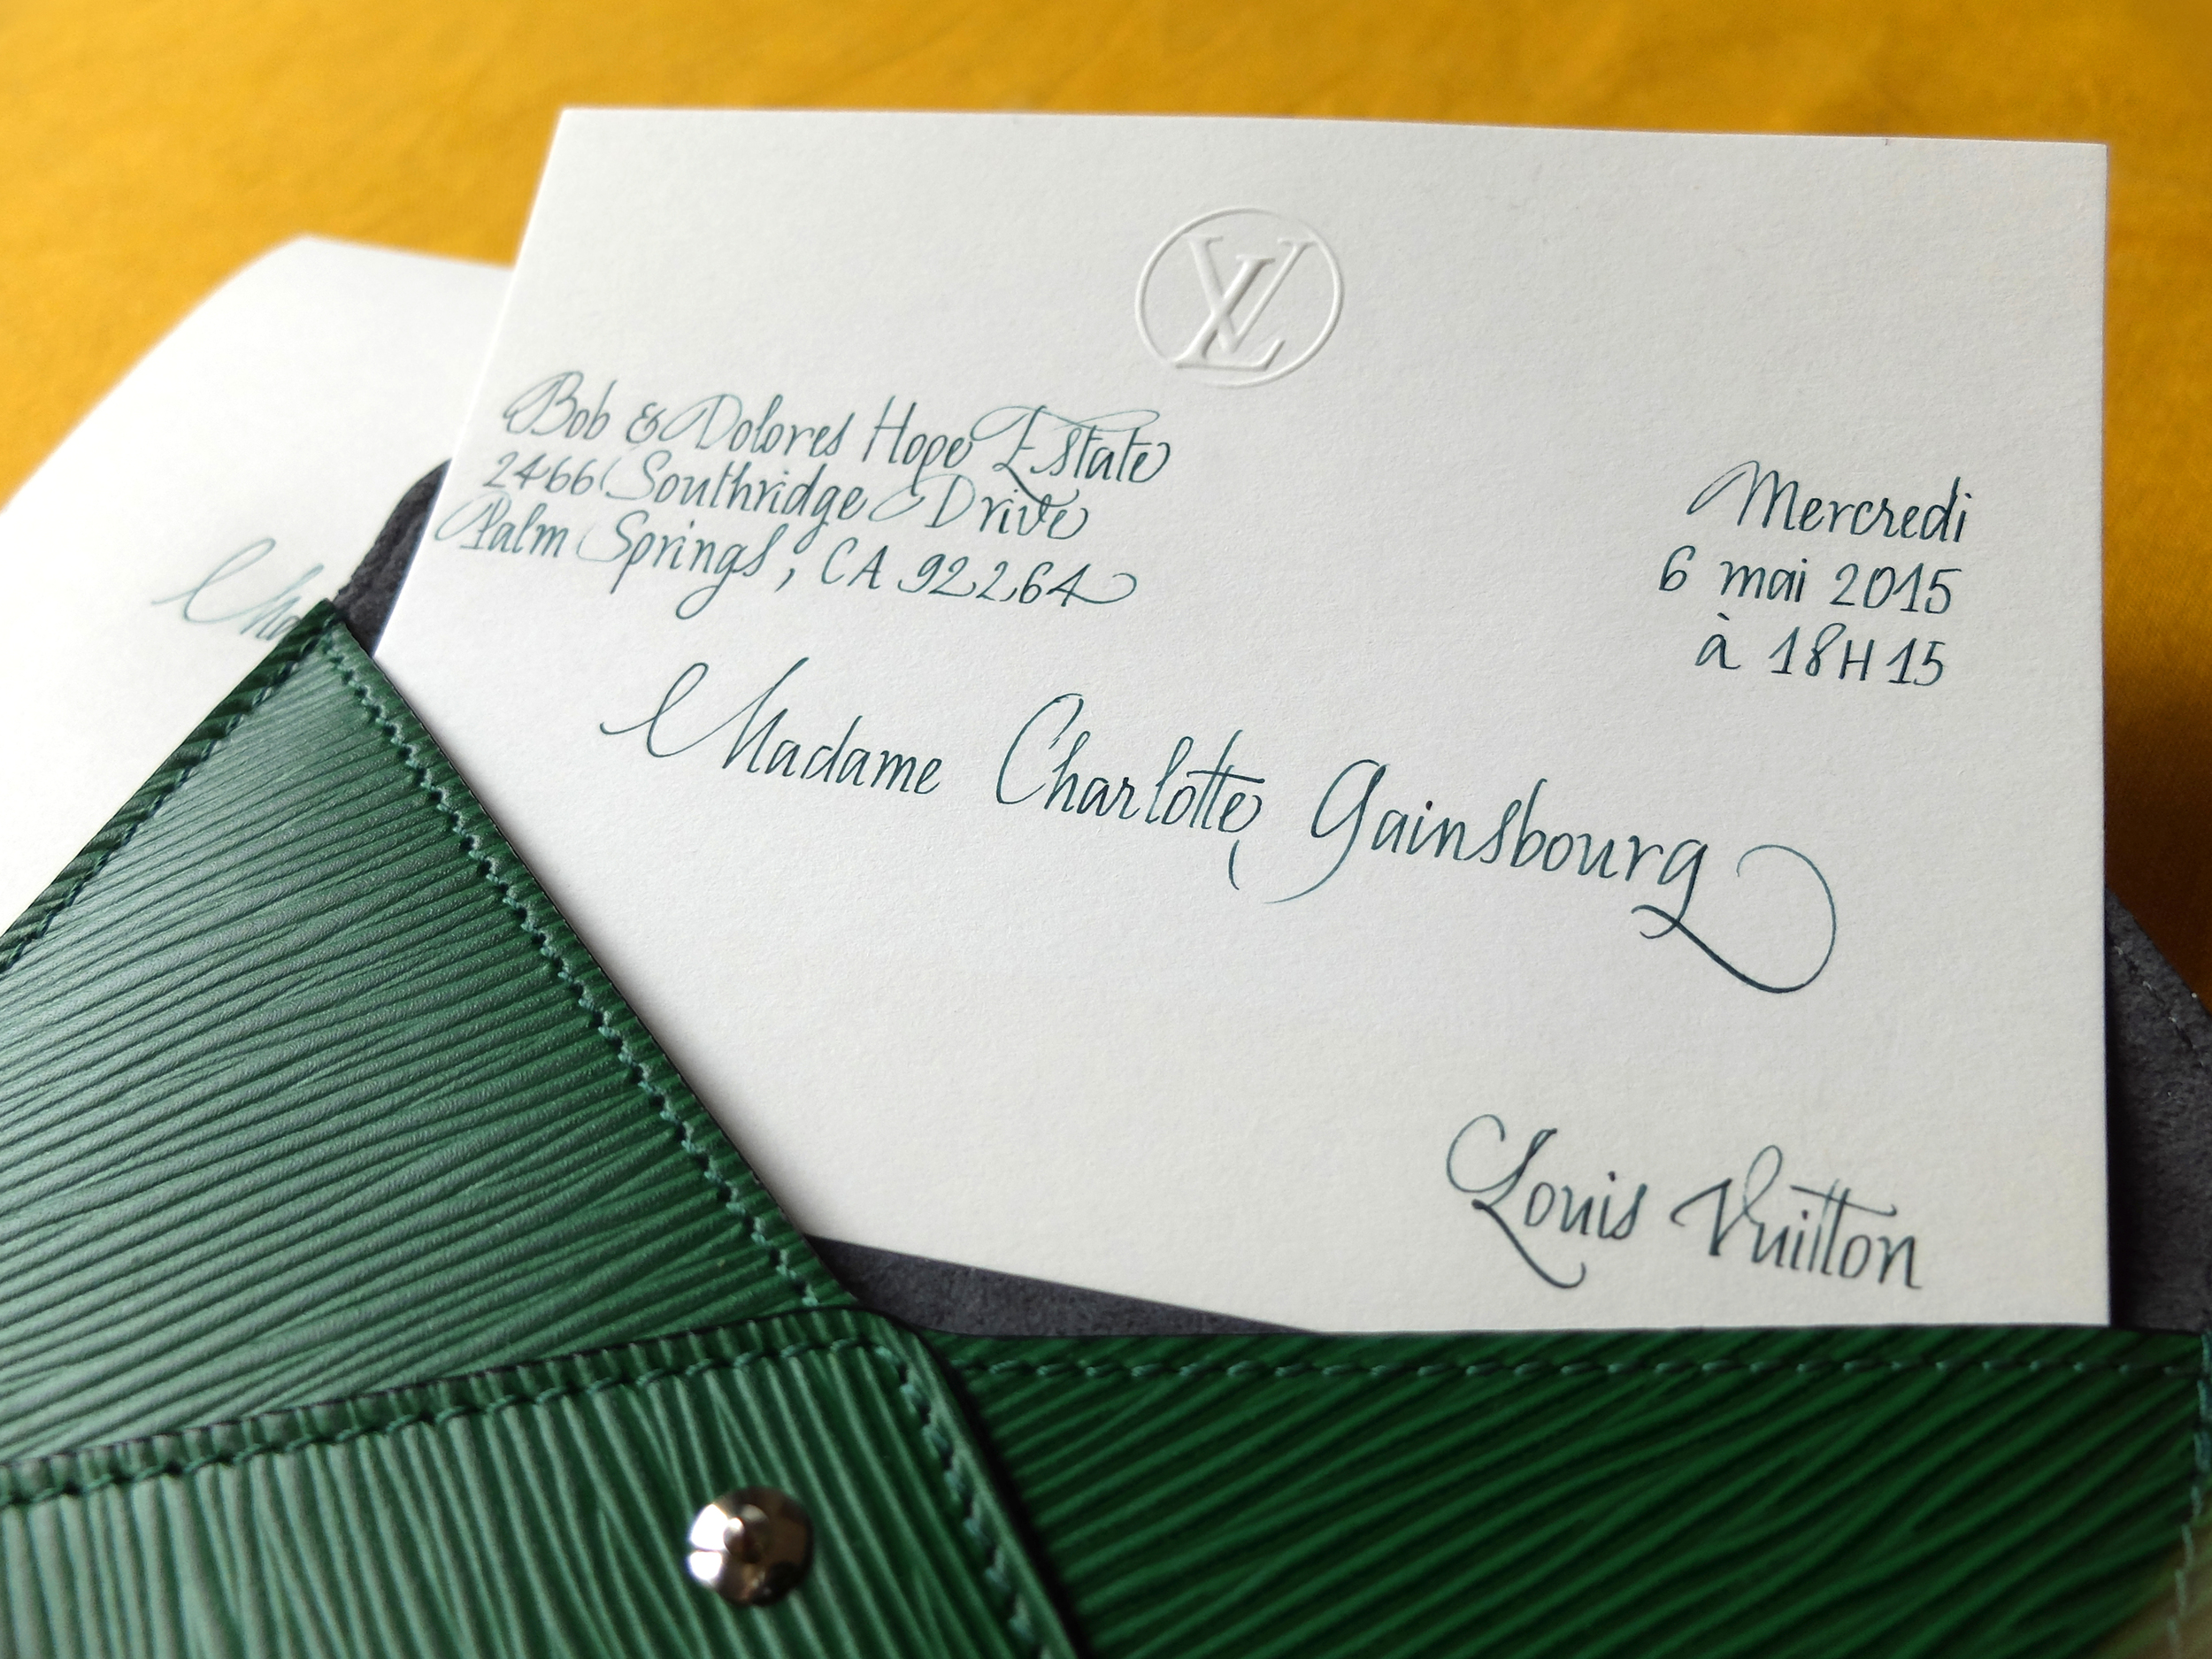 LV
Bob & Dolores Hope Estate
2466 Southridge Drive
Palm Springs, CA 92264
Mercredi
6 mai 2015
à 18H15
Madame Charlotte Gainsbourg
Louis Vuitton